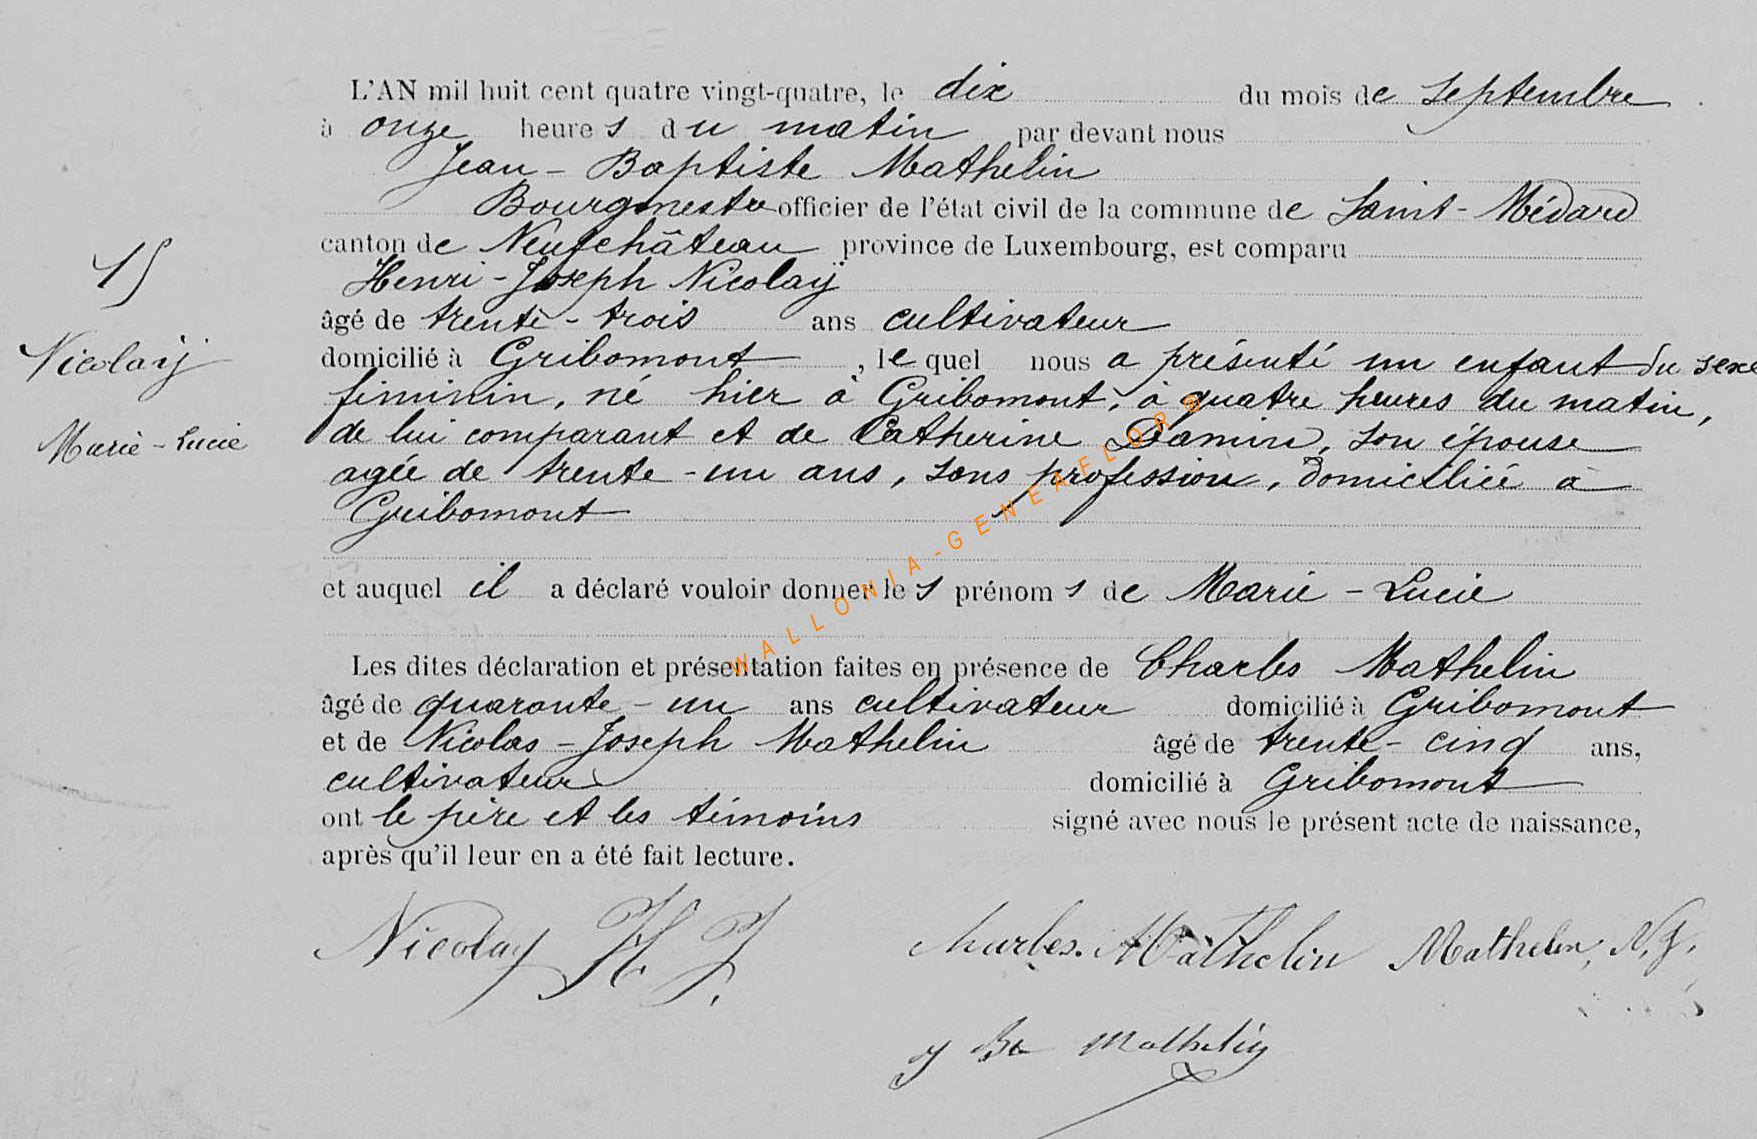 L'AN mil huit cent quatre vingt-quatre, le dix du mois de Septembre
à onze heures du matin par devant nous
Jean-Baptiste Mathelin
Bourgmestre officier de l'état civil de la commune de Saint-Médard
canton de Neufchâteau province de Luxembourg, est comparu
15
Henri-Joseph Nicolaÿ
âgé de trente-trois ans cultivateur
Nicolaÿ
domicilié à Gribomont, lequel nous a présenté un enfant du sexe
féminin, né hier à Gribomont, à quatre heures du matin,
Marie-Lucie
de lui comparant et de Catherine Damin, son épouse
agée de trente-un ans, sans profession, domiciliée à
Gribomont
et auquel il a déclaré vouloir donner les prénoms de Marie-Lucie
WALLONIA-GENEAFLORE
Les dites déclaration et présentation faites en présence de Charles Mathelin
âgé de quarante-un ans cultivateur domicilié à Gribomont
et de Nicolas-Joseph Mathelin âgé de trente-cinq ans,
cultivateur domicilié à Gribomont
ont le père et les témoins signé avec nous le présent acte de naissance,
après qu'il leur en a été fait lecture.
Nicolay H J. Charles. Mathelin Mathelin, N. J.
J Bte Mathelin